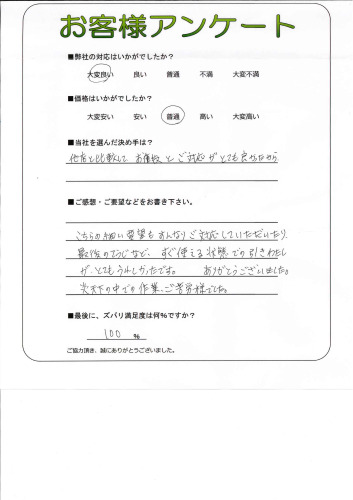 お客様アンケート
■弊社の対応はいかがでしたか？
大変良い 良い 普通 不満 大変不満
■価格はいかがでしたか？
大変安い 安い 普通 高い 大変高い
■当社を選んだ決め手は？
他店と比較して お値段と ご対応が とても良かったから
■ご感想・ご要望などをお書き下さい。
こちらの細い要望もすんなりご対応していただいたり
最後のそうじなど、すぐ使える状態での引きわたし
が、とてもうれしかったです。 ありがとうございました。
炎天下の中での作業、ご苦労様でした。
■最後に、ズバリ満足度は何％ですか？
100 ％
ご協力頂き、誠にありがとうございました。